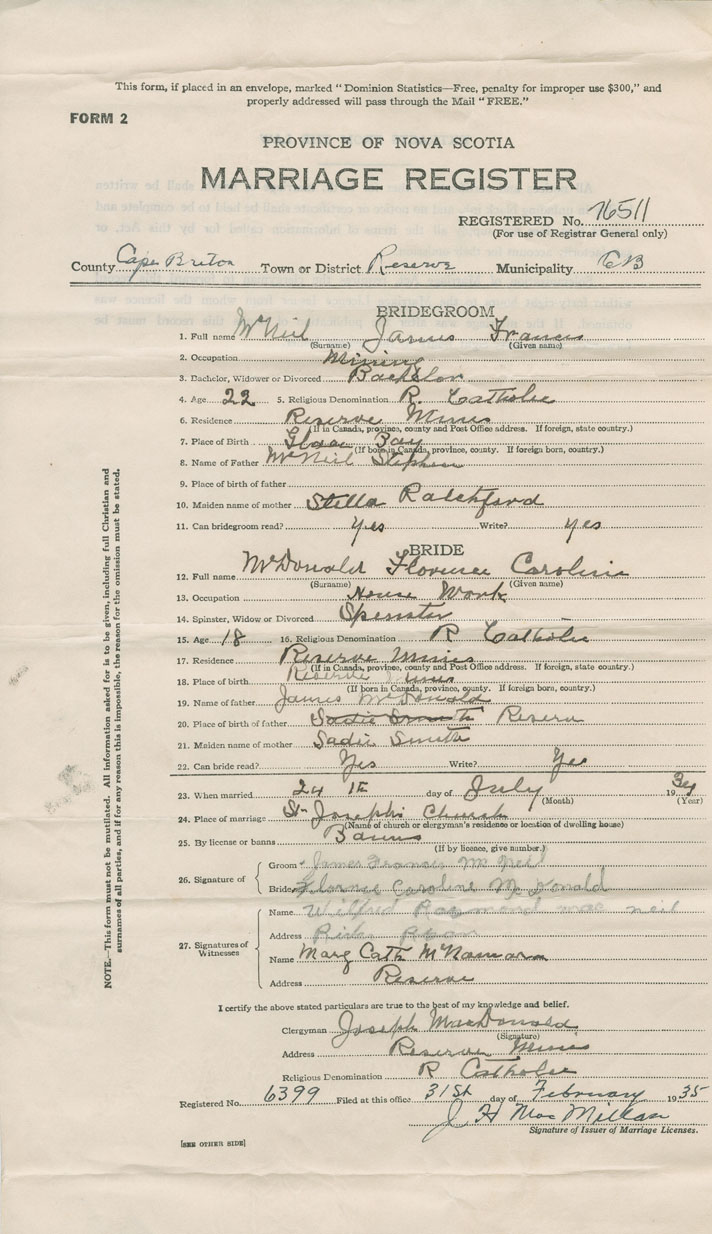 This form, if placed in an envelope, marked "Dominion Statistics—Free, penalty for improper use $300," and
properly addressed will pass through the Mail "FREE."
FORM 2
PROVINCE OF NOVA SCOTIA
MARRIAGE REGISTER
REGISTERED No. 76511
(For use of Registrar General only)
County Cape Breton Town or District Reserve Municipality CB
BRIDEGROOM
1. Full name McNeil James Francis
(Surname) (Given name)
2. Occupation Mining
3. Bachelor, Widower or Divorced Bachelor
4. Age 22 5. Religious Denomination R. Catholic
6. Residence Reserve Mines
(If in Canada, province, county and Post Office address. If foreign, state country.)
7. Place of Birth Glace Bay
(If born in Canada, province, county. If foreign born, country.)
8. Name of Father McNeil Stephen
9. Place of birth of father
10. Maiden name of mother Stella Ratchford
11. Can bridegroom read? Yes Write? yes
BRIDE
12. Full name McDonald Florence Caroline
(Surname) (Given name)
13. Occupation House Work
14. Spinster, Widow or Divorced Spenster
15. Age 18 16. Religious Denomination R Catholic
17. Residence Reserve Mines
(If in Canada, province, county and Post Office address. If foreign, state country.)
18. Place of birth Reserve Mines
(If born in Canada, province, county. If foreign born, country.)
19. Name of father James McDonald
20. Place of birth of father Sadie Smith Reserve
21. Maiden name of mother Sadie Smith
22. Can bride read? Yes Write? Yes
23. When married 24 th day of July 1934
(Month) (Year)
24. Place of marriage St Josephs Church
(Name of church or clergyman's residence or location of dwelling house)
25. By license or banns Banns
(If by licence, give number.)
26. Signature of
Groom James Francis Mc Neil
Bride Florence Caroline McDonald
27. Signatures of Witnesses
Name Wilfred Raymond mac neil
Address
Name Marg Cath McNamara
Address Reserve
I certify the above stated particulars are true to the best of my knowledge and belief.
Clergyman Joseph MacDonald
(Signature)
Address Reserve Mines
Religious Denomination R Catholic
Registered No. 6399 Filed at this office 31St day of February 1935
J H MacMillan
Signature of Issuer of Marriage Licenses.
[SEE OTHER SIDE]
NOTE.—This form must not be mutilated. All information asked for is to be given, including full Christian and
surnames of all parties, and if for any reason this is impossible, the reason for the omission must be stated.